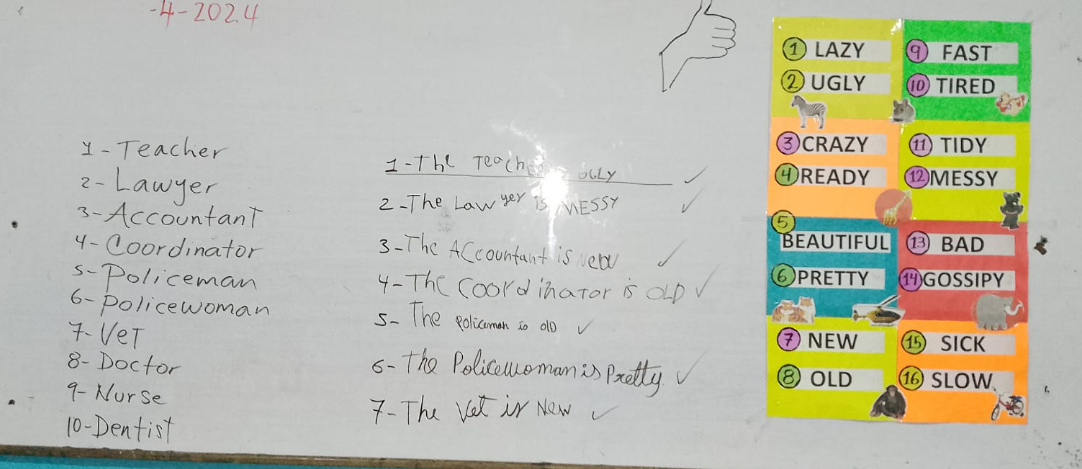 -4-2024
1-Teacher
2-Lawyer
3-Accountant
4-Coordinator
5-Policeman
6-policewoman
7-Vet
8-Doctor
9-Nurse
10-Dentist
1-The Teacher UGLY
2-The Lawyer is MESSY
3-The Accountant is new
4-The Coordinator is OLD
5-The policeman is old
6-The Policewoman is Pretty
7-The Vet is New
1 LAZY
2 UGLY
3 CRAZY
4 READY
5
BEAUTIFUL
6 PRETTY
7 NEW
8 OLD
9 FAST
10 TIRED
11 TIDY
12 MESSY
13 BAD
14 GOSSIPY
15 SICK
16 SLOW